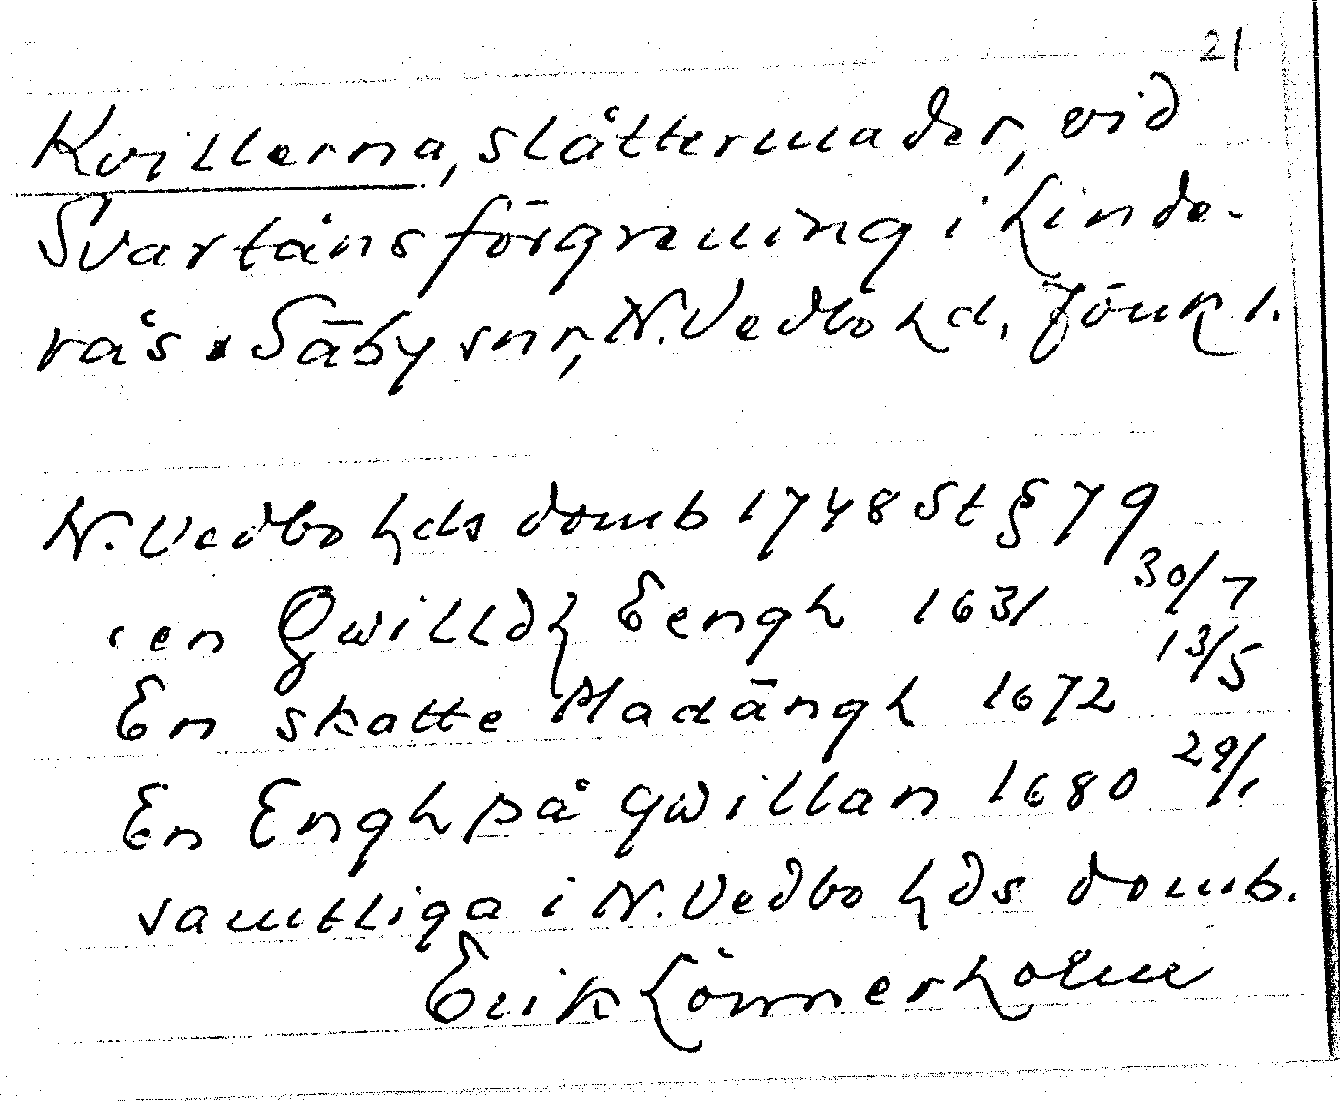 21
Kvillerna, slåttermader, vid
Svartåns förgrening i Linde-
rås o Säby snr, N. Vedbo hd, Jönk l.
N. Vedbo hds domb 1748 St § 79
en Qwilldh Eengh 1631 30/7
En skatte Madängh 1672 13/5
En Engh på qwillan 1680 29/1
samtliga i N. Vedbo hds domb.
Erik Lönnerholm